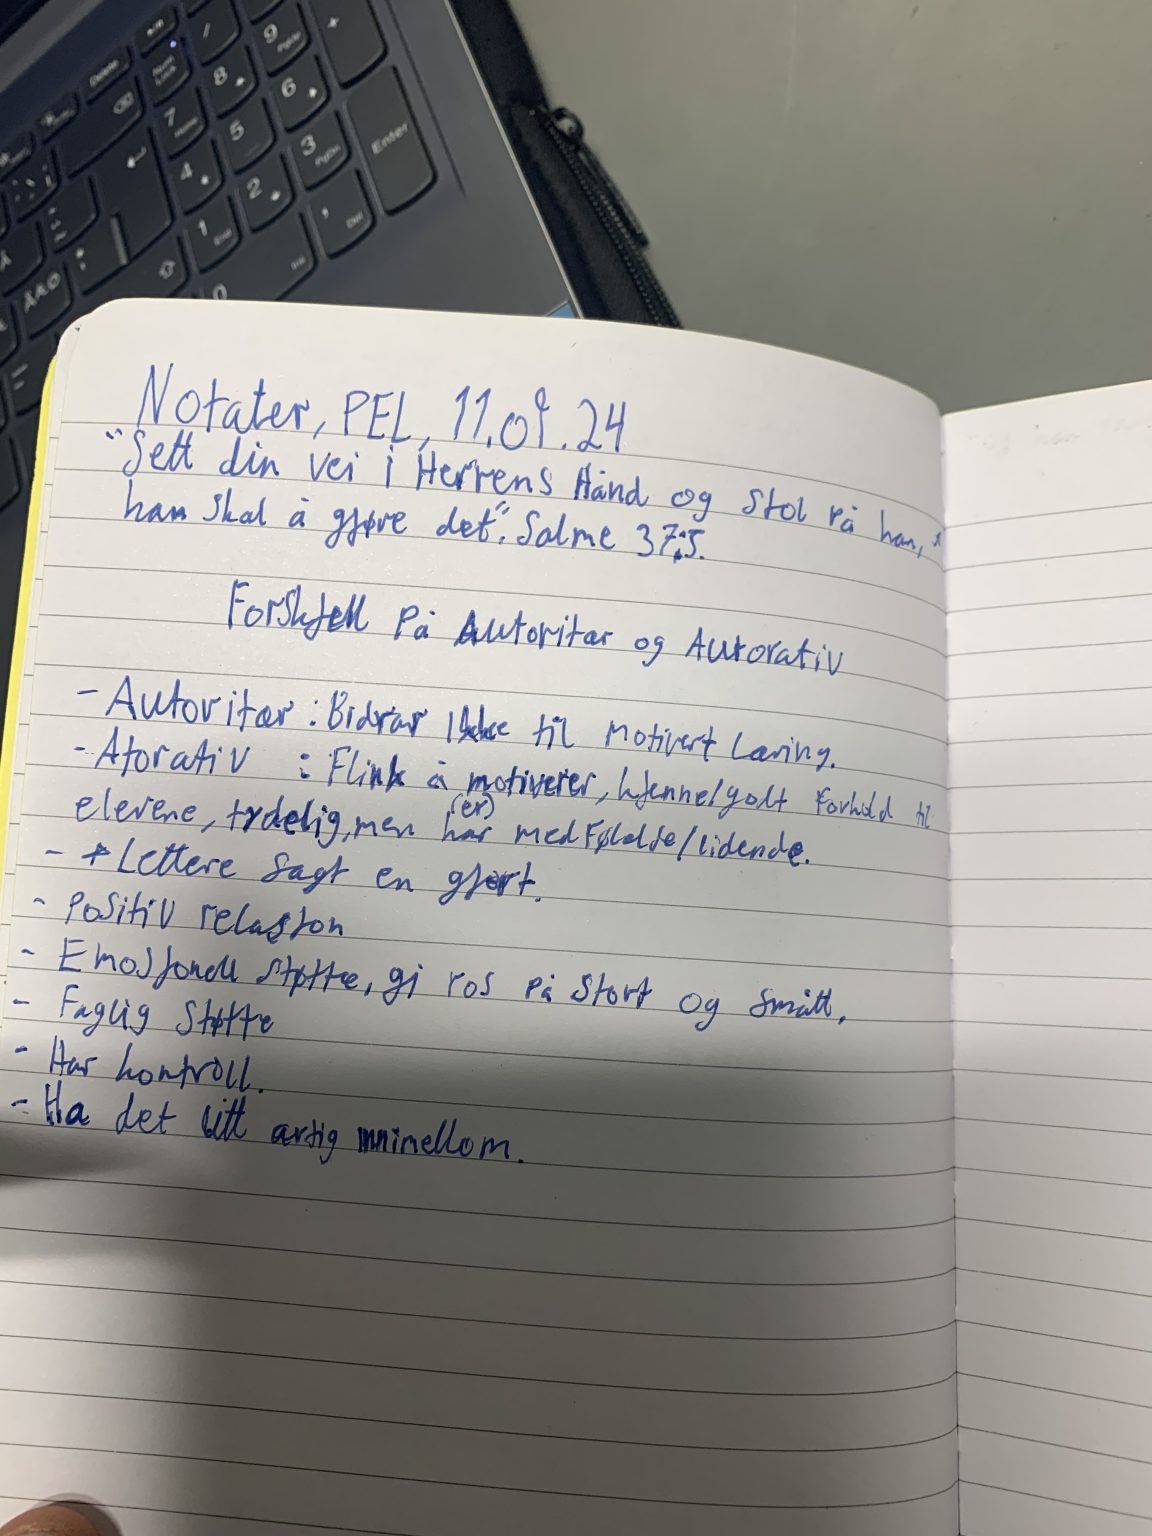 Delete
Num Lock
/
+
7 Home
8
9 PgUp
4
5
6
1 End
2
3 PgDn
Enter
0 Ins
, Del
ÆØ
Notater, PEL, 11.09.24
"Sett din vei i Herrens Hånd og Stol på han,
han skal å gjøre det". Salme 37:5.
Forskjell på Autoritær og Autorativ
- Autoritær : Bidrar Ikke til Motivert Læring.
- Atorativ : Flink å motiverer, kjenne/godt Forhold til
(er)
elevene, tydelig, men har medFølelse/lidende.
- + Lettere sagt en gjort.
- Positiv relasjon
- Emosjonell støtte, gi ros på Stort og smått.
- Faglig Støtte
- Har kontroll.
- Ha det litt artig innimellom.